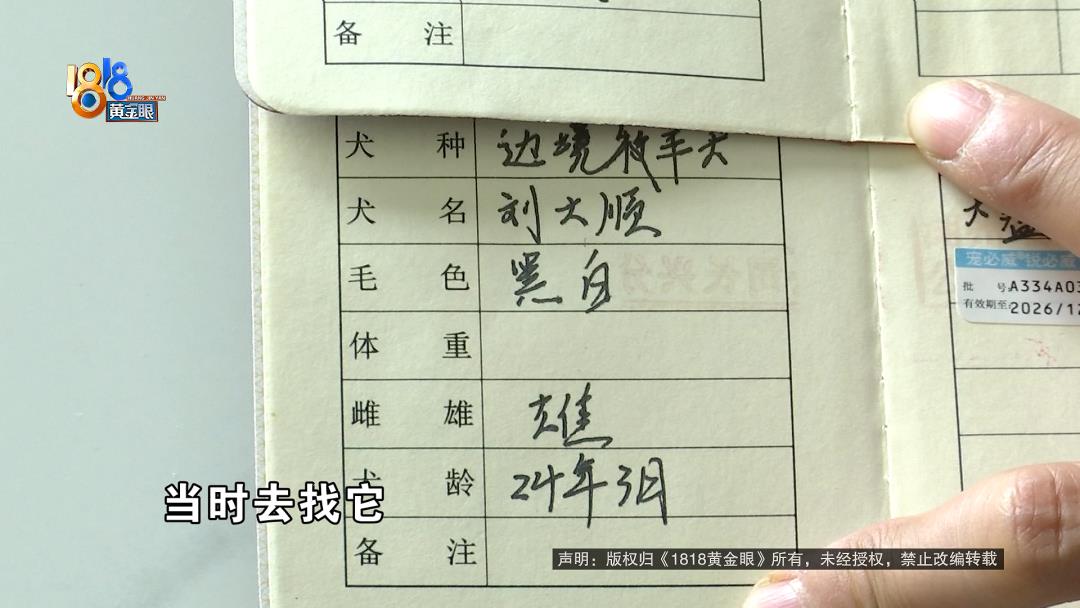 备注
1818
黄金眼
犬种 边境牧羊犬
犬名 刘大顺
毛色 黑白
体重
雌雄 雄
犬龄 24年3月
备注
宠必威 锐必威
批号:A334A03
有效期至:2026/12
当时去找它
声明：版权归《1818黄金眼》所有，未经授权，禁止改编转载